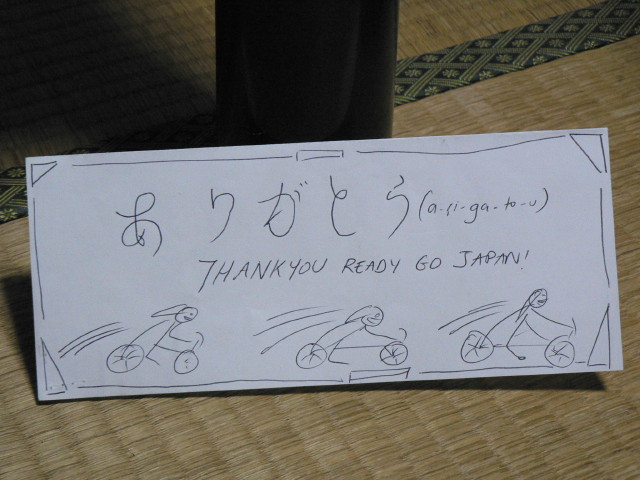 ありがとう (a-ri-ga-to-u)
THANKYOU READY GO JAPAN!